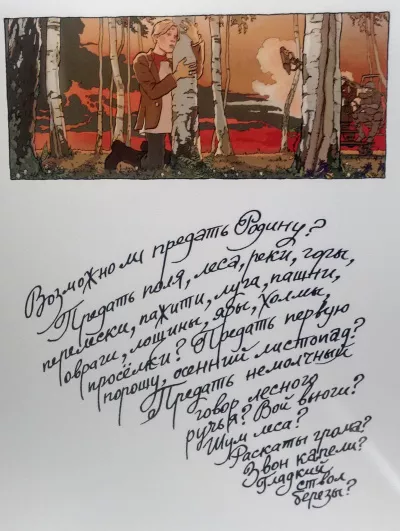 Возможно ли предать Родину?
Предать поля, леса, реки, горы,
перелески, пажити, луга, пашни,
овраги, лощины, яры, холмы,
просёлки? Предать первую
порошу, осенний листопад?
Предать немолчный
говор лесного
ручья? Вой вьюги?
Шум леса?
Раскаты грома?
Звон капели?
Гладкий
ствол
берёзы?